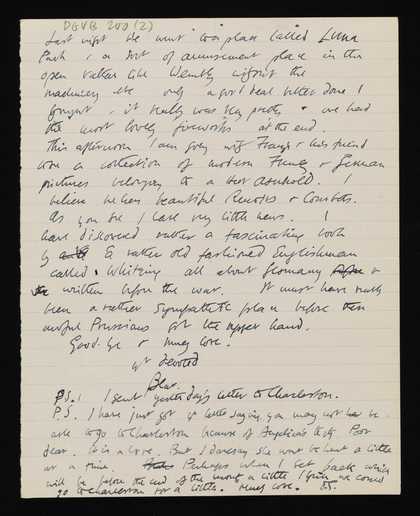 DGVB 200 (2)
Last night we went to a place called Luna
Park, a sort of amusement place in the
open rather like Wembly without the
machinery etc only a good deal better done I
thought, it really was very pretty & we had
the most lovely fireworks at the end.
This afternoon I am going with Franzi & his friend
to see a collection of modern French & German
pictures belonging to a
believe he has beautiful Renoirs & Courbets.
As you see I have very little news. I
have discovered rather a fascinating book
by a rather old fashioned Englishman
called Whiting all about Germany &
written before the war. It must have really
been a rather sympathetic place before the
awful Prussians got the upper hand.
Good-bye & much love.
yr devoted
Bear.
P.S. I sent yesterdays letter to Charleston.
P.S. I have just got yr letter saying you may not be
able to go to Charleston because of Angelica's Poor
dear. But I daresay she wont be but a little
at a time. Perhaps when I get back which
will be before the end of the month a little I think we could
go to Charleston for a little. Much love.